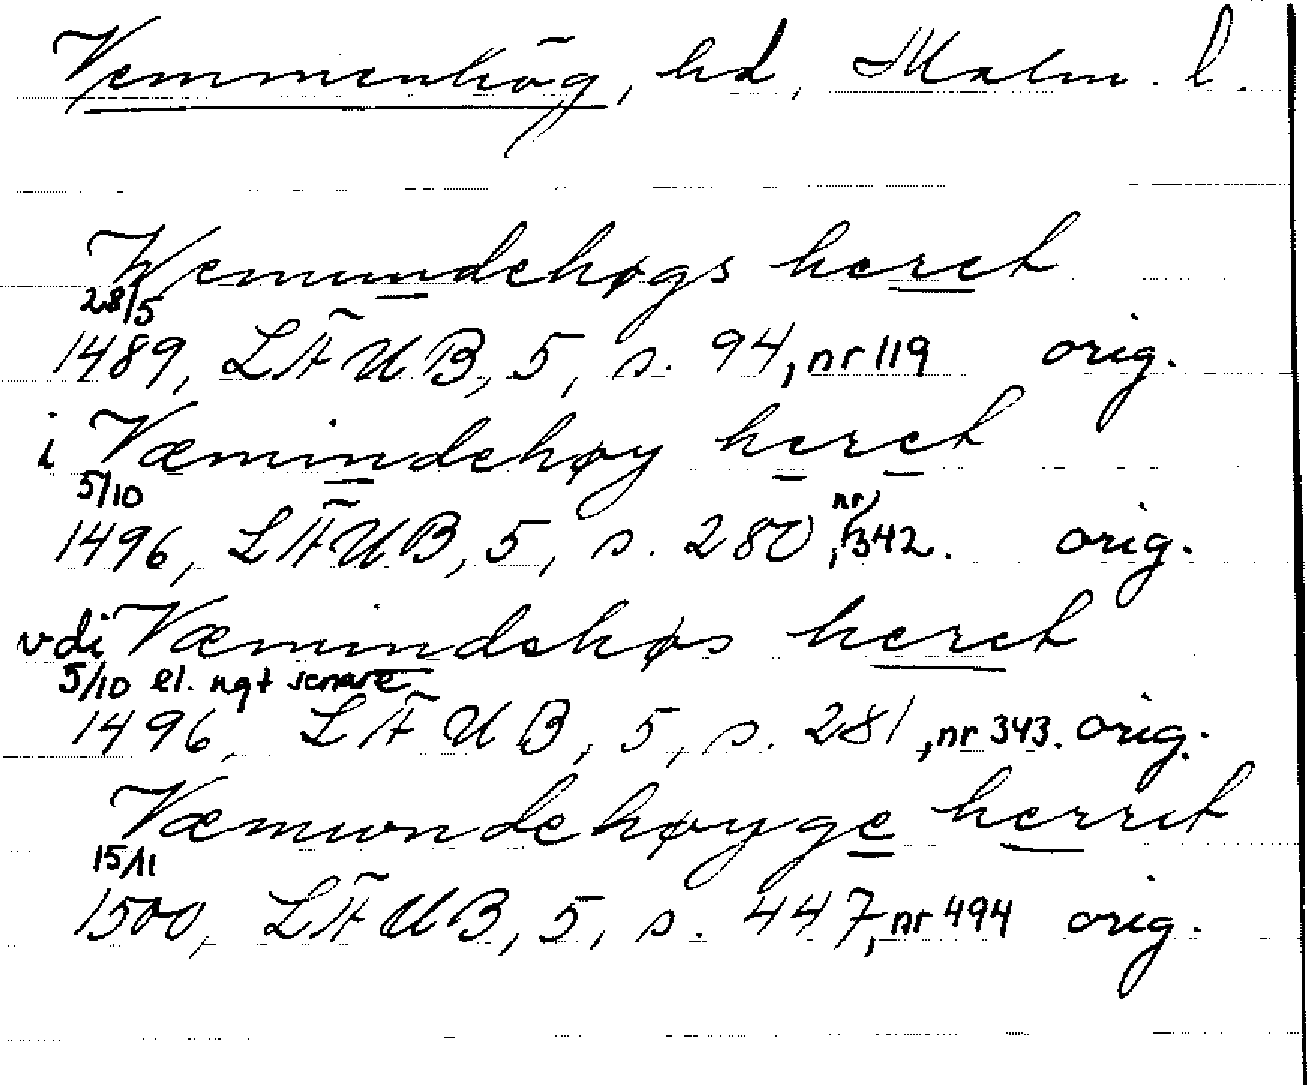 Vemmenhög, hd, Malm. l.
Wemundehøgs heret
28/5
1489, LÄUB, 5, s. 94, nr 119 orig.
i Væmindehøy heret
5/10
1496, LÄUB, 5, s. 280, nr 342. orig.
vdi Væmindehøs heret
5/10 el. ngt senare
1496, LÄUB, 5, s. 281, nr 343. orig.
Væmwndehøyge herret
15/11
1500, LÄUB, 5, s. 447, nr 494 orig.